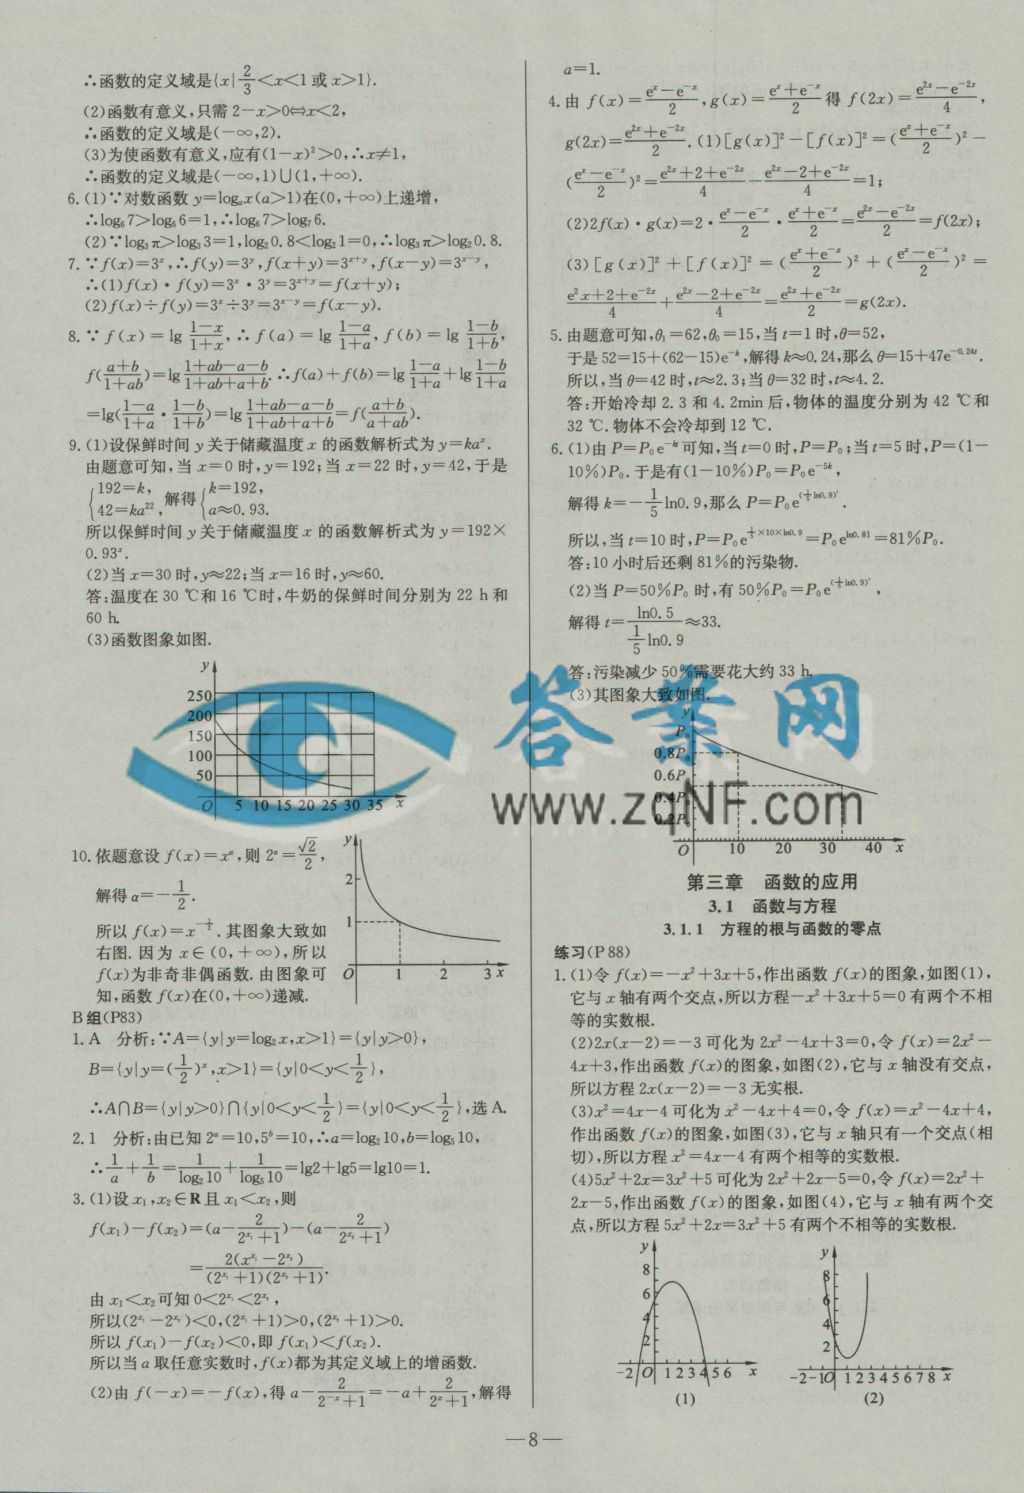 ∴函数的定义域是{x|2/3<x<1或x>1}.
(2)函数有意义,只需2-x>0⇔x<2,
∴函数的定义域是(-∞,2).
(3)为使函数有意义,应有(1-x)²>0,∴x≠1,
∴函数的定义域是(-∞,1)∪(1,+∞).
6.(1)∵对数函数y=logₐx(a>1)在(0,+∞)上递增,
∴log₆7>log₆6=1,∴log₆7>log₇6.
(2)∵log₃π>log₃3=1,log₂0.8<log₂1=0,∴log₃π>log₂0.8.
7.∵f(x)=3^x,∴f(y)=3^y,f(x+y)=3^(x+y),f(x-y)=3^(x-y),
∴(1)f(x)·f(y)=3^x·3^y=3^(x+y)=f(x+y);
(2)f(x)÷f(y)=3^x÷3^y=3^(x-y)=f(x-y).
8.∵f(x)=lg (1-x)/(1+x),∴f(a)=lg (1-a)/(1+a),f(b)=lg (1-b)/(1+b),
f((a+b)/(1+ab))=lg (1+ab-a-b)/(1+ab+a+b).∴f(a)+f(b)=lg (1-a)/(1+a)+lg (1-b)/(1+a)
=lg((1-a)/(1+a)·(1-b)/(1+b))=lg (1+ab-a-b)/(1+ab+a+b)=f((a+b)/(a+ab)).
9.(1)设保鲜时间y关于储藏温度x的函数解析式为y=ka^x.
由题意可知,当x=0时,y=192;当x=22时,y=42,于是
{192=k, 42=ka²², 解得{k=192, a≈0.93.
所以保鲜时间y关于储藏温度x的函数解析式为y=192×
0.93^x.
(2)当x=30时,y≈22;当x=16时,y≈60.
答:温度在30℃和16℃时,牛奶的保鲜时间分别为22 h和
60 h.
(3)函数图象如图.
y
250
200
150
100
50
O 5 10 15 20 25 30 35 x
10.依题意设f(x)=x^α,则2^α=√2/2,
解得α=-1/2.
所以f(x)=x^(-1/2).其图象大致如
右图.因为x∈(0,+∞),所以
f(x)为非奇非偶函数.由图象可
知,函数f(x)在(0,+∞)递减.
y
2
1
O 1 2 3 x
B组(P83)
1.A 分析:∵A={y|y=log₂x,x>1}={y|y>0},
B={y|y=(1/2)^x,x>1}={y|0<y<1/2},
∴A∩B={y|y>0}∩{y|0<y<1/2}={y|0<y<1/2},选A.
2.1 分析:由已知2^a=10,5^b=10,∴a=log₂10,b=log₅10,
∴1/a+1/b=1/log₂10+1/log₅10=lg2+lg5=lg10=1.
3.(1)设x₁,x₂∈R且x₁<x₂,则
f(x₁)-f(x₂)=(a-2/(2^x₁+1))-(a-2/(2^x₂+1))
=2(x^x₁-2^x₂)/((2^x₁+1)(2^x₂+1)).
由x₁<x₂可知0<2^x₁<2^x₂,
所以(2^x₁-2^x₂)<0,(2^x₁+1)>0,(2^x₂+1)>0.
所以f(x₁)-f(x₂)<0,即f(x₁)<f(x₂).
所以当a取任意实数时,f(x)都为其定义域上的增函数.
(2)由f(-x)=-f(x),得a-2/(2^(-x)+1)=-a+2/(2^x+1),解得
a=1.
4.由f(x)=(e^x-e^(-x))/2,g(x)=(e^x+e^(-x))/2得f(2x)=(e^(2x)-e^(-2x))/4,
g(2x)=(e^(2x)+e^(-2x))/2.(1)[g(x)]²-[f(x)]²=((e^x+e^(-x))/2)²-
((e^x-e^(-x))/2)²=(e^(2x)+2+e^(-2x))/4-(e^(2x)-2+e^(-2x))/4=1;
(2)2f(x)·g(x)=2·(e^x-e^(-x))/2·(e^x+e^(-x))/2=(e^(2x)-e^(-2x))/2=f(2x);
(3)[g(x)]²+[f(x)]²=((e^x+e^(-x))/2)²+((e^x-e^(-x))/2)²=
(e²x+2+e^(-2x))/4+(e^(2x)-2+e^(-2x))/4=(e^(2x)+e^(-2x))/2=g(2x).
5.由题意可知,θ₁=62,θ₀=15,当t=1时,θ=52,
于是52=15+(62-15)e^(-k),解得k≈0.24,那么θ=15+47e^(-0.24t).
所以,当θ=42时,t≈2.3;当θ=32时,t≈4.2.
答:开始冷却2.3和4.2min后,物体的温度分别为42℃和
32℃.物体不会冷却到12℃.
6.(1)由P=P₀e^(-kt)可知,当t=0时,P=P₀;当t=5时,P=(1-
10%)P₀.于是有(1-10%)P₀=P₀e^(-5k),
解得k=-1/5 ln0.9,那么P=P₀e^((1/5 ln0.9)t).
所以,当t=10时,P=P₀e^(1/5×10×ln0.9)=P₀e^(ln0.81)=81%P₀.
答:10小时后还剩81%的污染物.
(2)当P=50%P₀时,有50%P₀=P₀e^((1/5 ln0.9)t),
解得t=ln0.5/(1/5 ln0.9)≈33.
答:污染减少50%需要花大约33 h.
(3)其图象大致如图.
y
P₀
0.8P₀
0.6P₀
0.4P₀
0.2P₀
O 10 20 30 40 x
第三章 函数的应用
3.1 函数与方程
3.1.1 方程的根与函数的零点
练习(P88)
1.(1)令f(x)=-x²+3x+5,作出函数f(x)的图象,如图(1),
它与x轴有两个交点,所以方程-x²+3x+5=0有两个不相
等的实数根.
(2)2x(x-2)=-3可化为2x²-4x+3=0,令f(x)=2x²-
4x+3,作出函数f(x)的图象,如图(2),它与x轴没有交点,
所以方程2x(x-2)=-3无实根.
(3)x²=4x-4可化为x²-4x+4=0,令f(x)=x²-4x+4,
作出函数f(x)的图象,如图(3),它与x轴只有一个交点(相
切),所以方程x²=4x-4有两个相等的实数根.
(4)5x²+2x=3x²+5可化为2x²+2x-5=0,令f(x)=2x²+
2x-5,作出函数f(x)的图象,如图(4),它与x轴有两个交
点,所以方程5x²+2x=3x²+5有两个不相等的实数根.
y
8
6
4
2
-2 O 1 2 3 4 5 6 x
(1)
y
8
6
4
2
-2-1O 1 2 3 4 5 6 7 8 x
(2)
答案网
www.zqNF.com
—8—